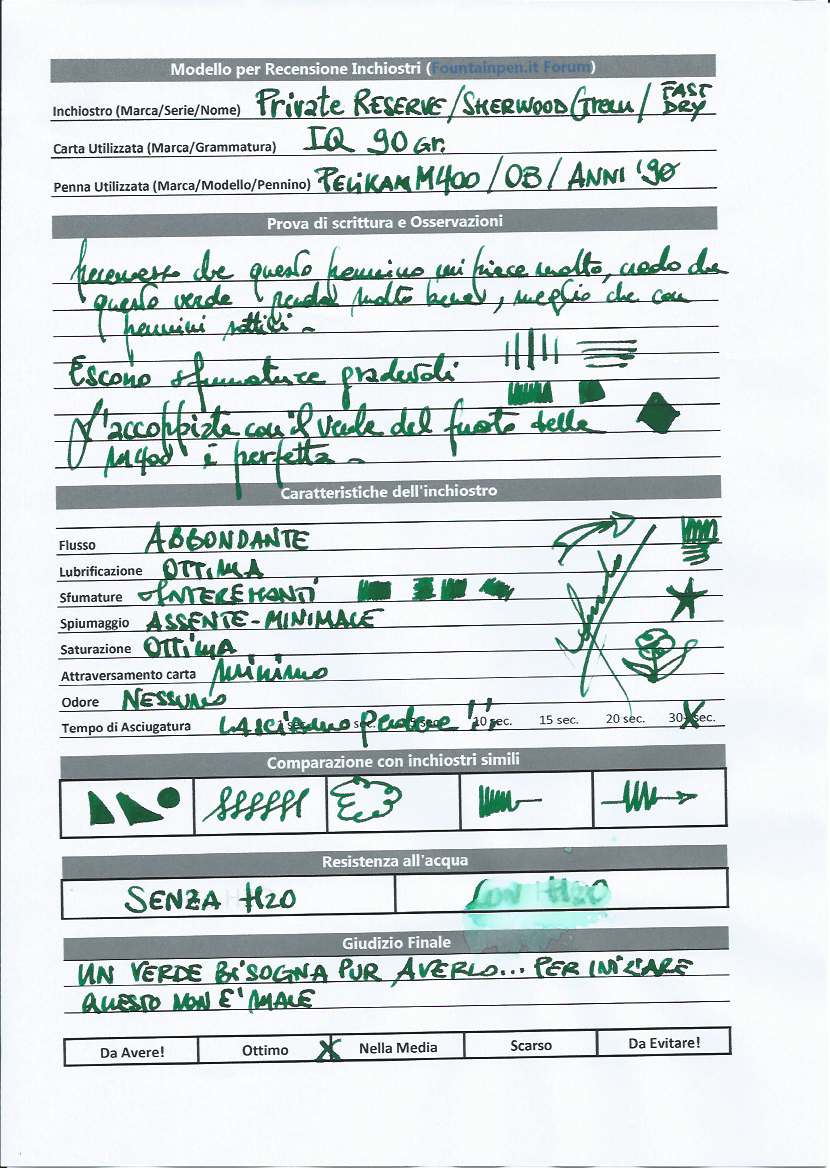 Modello per Recensione Inchiostri (Fountainpen.it Forum)
Inchiostro (Marca/Serie/Nome) Private RESERVE/SHERWOOD Green/ FAST DRY
Carta Utilizzata (Marca/Grammatura) IQ 90 Gr.
Penna Utilizzata (Marca/Modello/Pennino) PELIKAN M400 / OB / ANNI '90
Prova di scrittura e Osservazioni
premesso che questo pennino mi piace molto, credo che
questo verde renda molto bene, meglio che con
pennini sottili -
Escono sfumature gradevoli
L'accoppiata con il verde del fusto della
M400 è perfetta -
Caratteristiche dell'inchiostro
Flusso ABBONDANTE
Lubrificazione OTTIMA
Sfumature INTERESSANTI
Spiumaggio ASSENTE-MINIMALE
Saturazione OTTIMA
Attraversamento carta Minimo
Odore NESSUNO
Tempo di Asciugatura LASCIAMO perdere!! 10 sec. 15 sec. 20 sec. 30+ sec.
Comparazione con inchiostri simili
Resistenza all'acqua
SENZA H2O CON H2O
Giudizio Finale
UN VERDE BISOGNA PUR AVERLO... PER INIZIARE
QUESTO NON E' MALE
Da Avere! Ottimo X Nella Media Scarso Da Evitare!